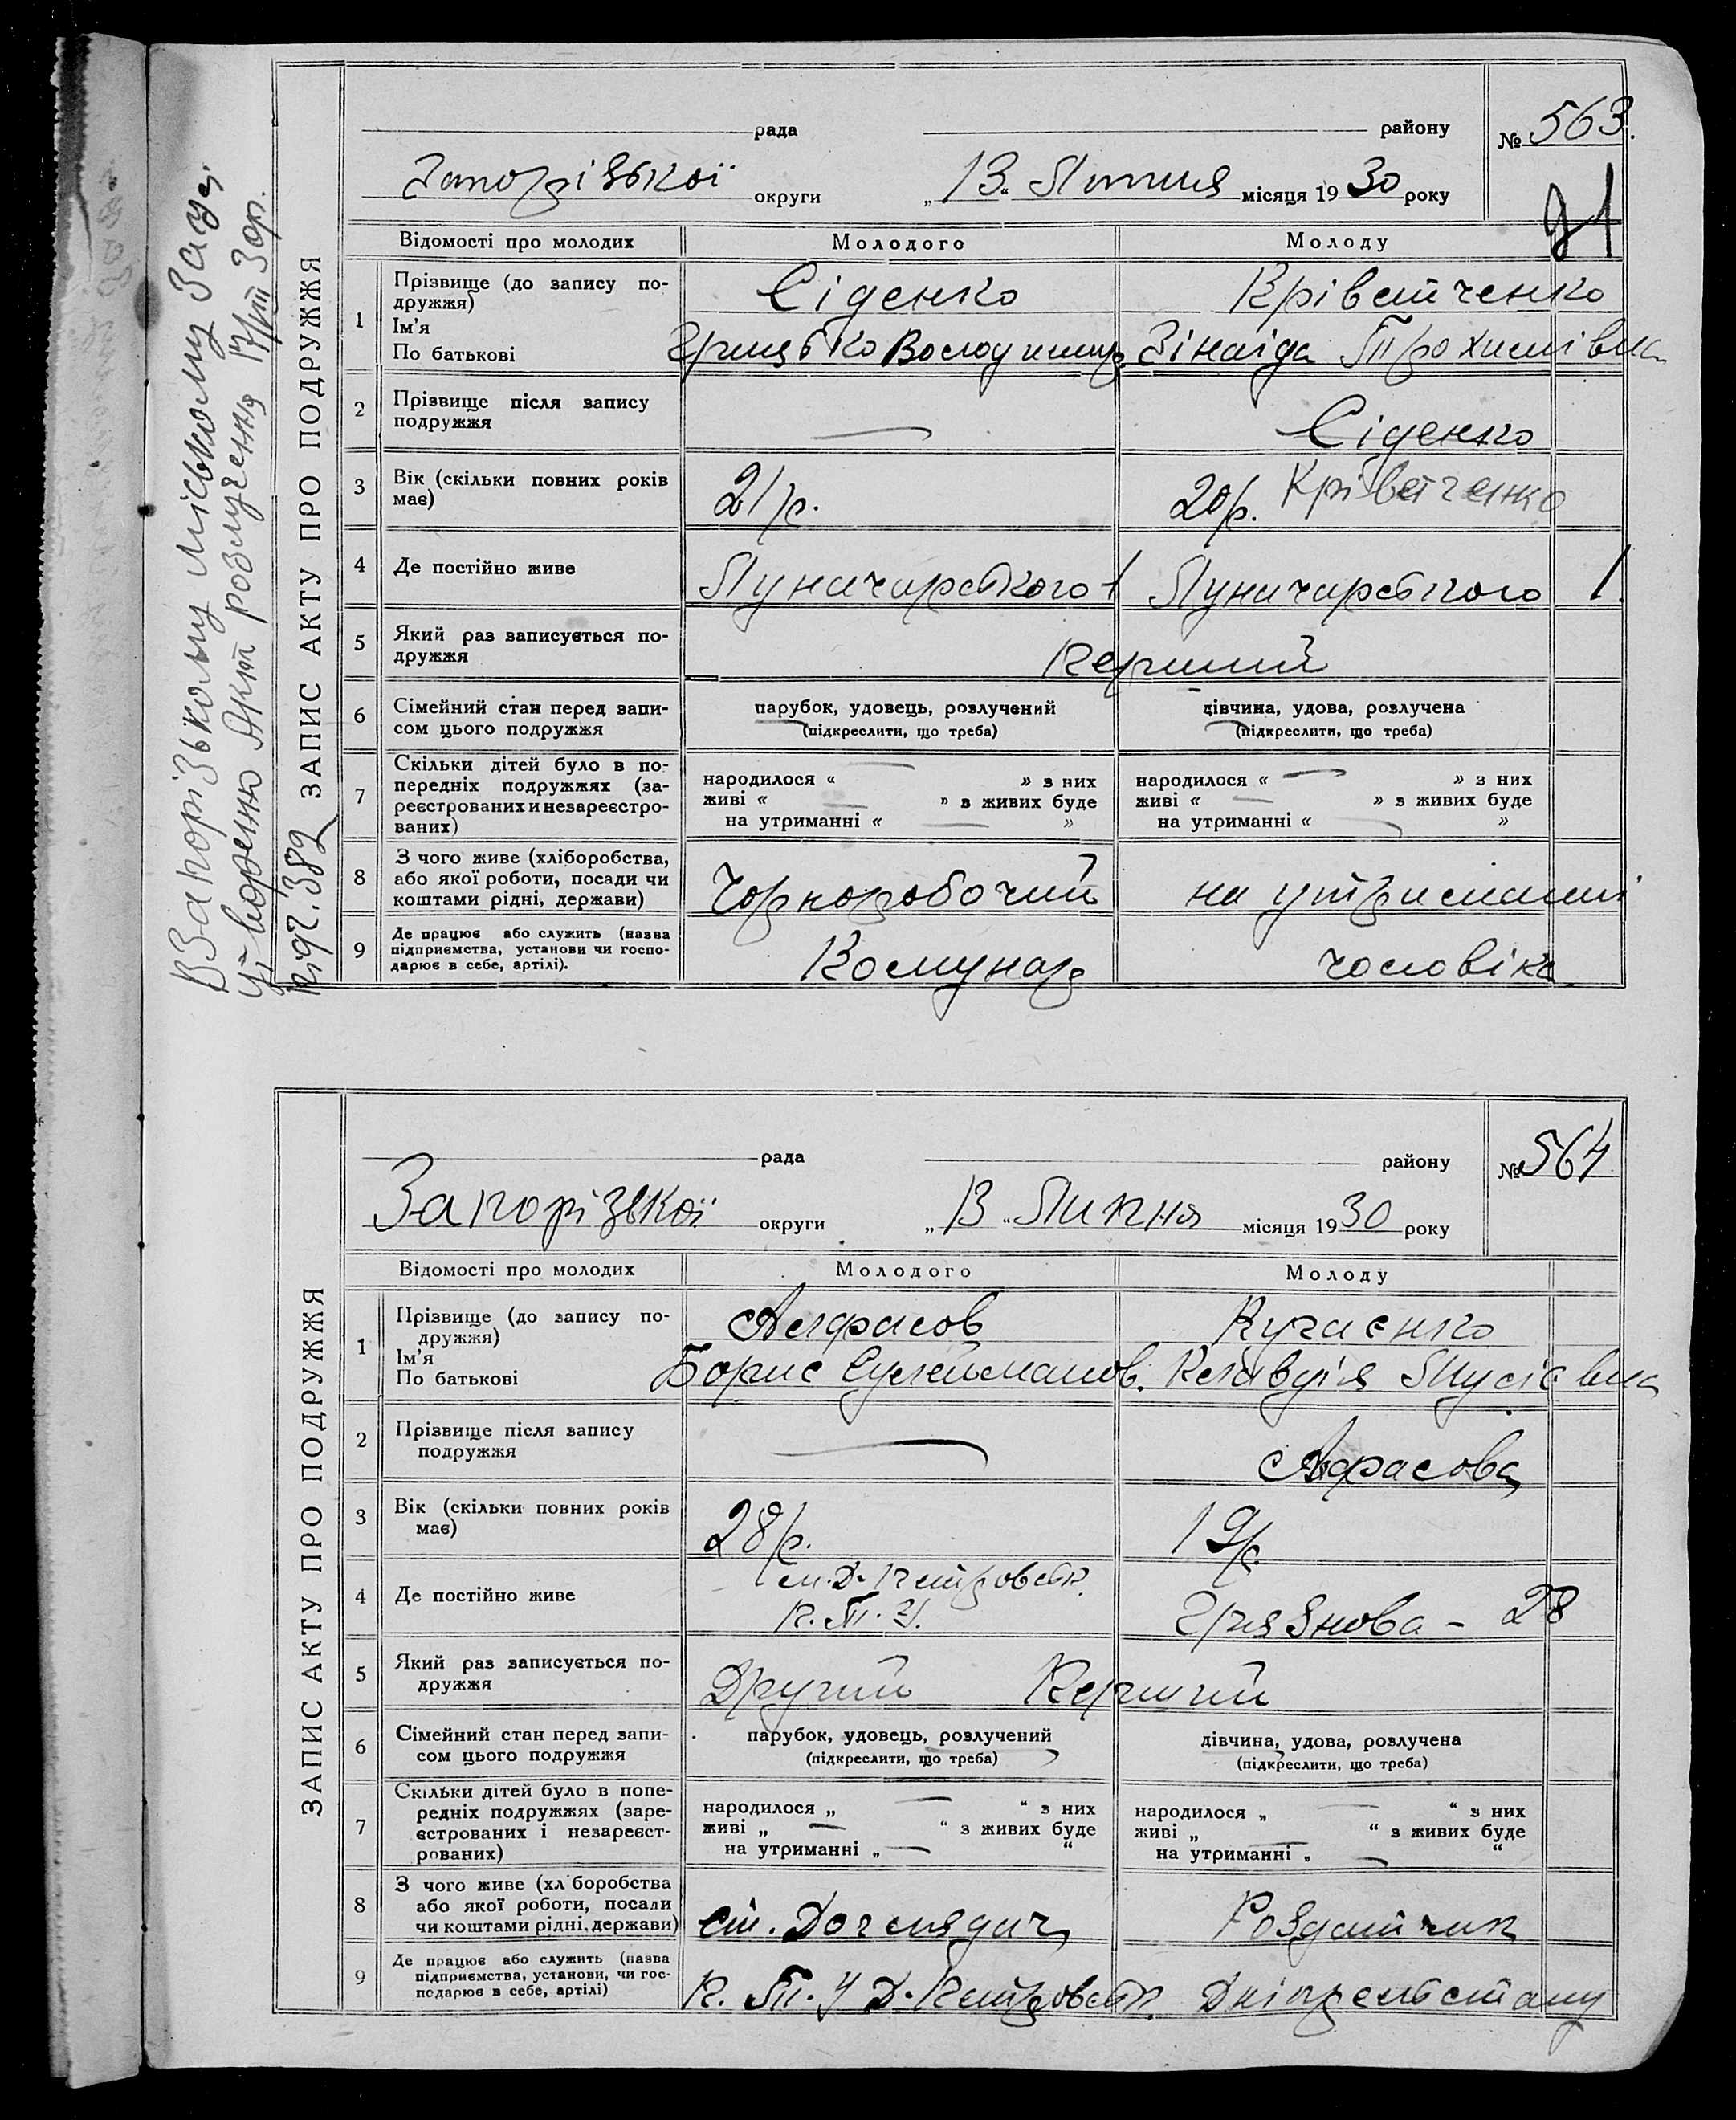 рада району № 563.
Запорізької округи „13" Липня місяця 1930 року
91
ЗАПИС АКТУ ПРО ПОДРУЖЖЯ
В Запорізькому міському Загсі
утворенно Акт розлучення 30р.
під ч. 389
Відомості про молодих Молодого Молоду
1 Прізвище (до запису по-
дружжя)
Ім'я
По батькові
Сіденко Кріветченко
Грицько Володимир. Зінаіда Трохимівна
2 Прізвище після запису
подружжя
— Сіденко
Кріветченко
3 Вік (скільки повних років
має)
21 р. 20 р.
4 Де постійно живе Луначарського 1 Луначарського 1.
5 Який раз записується по-
дружжя
Перший
6 Сімейний стан перед запи-
сом цього подружжя
парубок, удовець, розлучений дівчина, удова, розлучена
(підкреслити, що треба) (підкреслити, що треба)
7 Скільки дітей було в по-
передніх подружжях (за-
реєстрованих и незареєстро-
ваних)
народилося « — » з них народилося « — » з них
живі « — » з живих буде живі « — » з живих буде
на утриманні « — » на утриманні « — »
8 З чого живе (хліборобства,
або якої роботи, посади чи
коштами рідні, держави)
Чорноробочий на утриманні
9 Де працює або служить (назва
підприємства, установи чи госпо-
дарює в себе, артілі).
Комунар чоловіка
рада району № 564
Запорізької округи „13" Липня місяця 1930 року
ЗАПИС АКТУ ПРО ПОДРУЖЖЯ
Відомості про молодих Молодого Молоду
1 Прізвище (до запису по-
дружжя)
Ім'я
По батькові
Кучаєнко
Борис Сулейманов. Клавдія Мусієвна
2 Прізвище після запису
подружжя
—
3 Вік (скільки повних років
має)
28 р. 19 р.
4 Де постійно живе
м. Д-Петровськ
К. П. У. Грязнова - 28
5 Який раз записується по-
дружжя
Другий Перший
6 Сімейний стан перед запи-
сом цього подружжя
парубок, удовець, розлучений дівчина, удова, розлучена
(підкреслити, що треба) (підкреслити, що треба)
7 Скільки дітей було в попе-
редніх подружжях (заре-
єстрованих і незареєст-
рованих)
народилося „ — “ з них народилося „ — “ з них
живі „ — “ з живих буде живі „ — “ з живих буде
на утриманні „ — “ на утриманні „ — “
8 З чого живе (хліборобства
або якої роботи, посади
чи коштами рідні, держави)
ст. Доглядач Роздатчик
9 Де працює або служить (назва
підприємства, установи, чи гос-
подарює в себе, артілі)
К. П. У Д-Петровськ Дніпрельстану